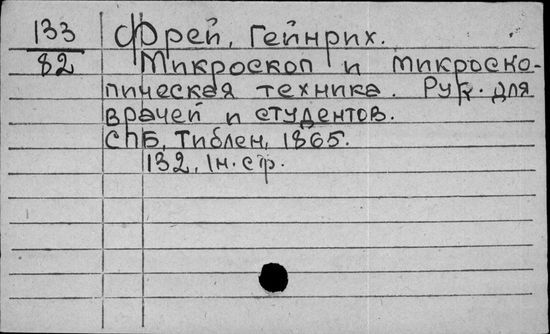 133 Фрей, Гейнрих.
82 Микроскоп и микроско-
пическая техника. Рук. для
врачей и студентов.
СПБ, Тиблен, 1865.
132, 1н. стр.